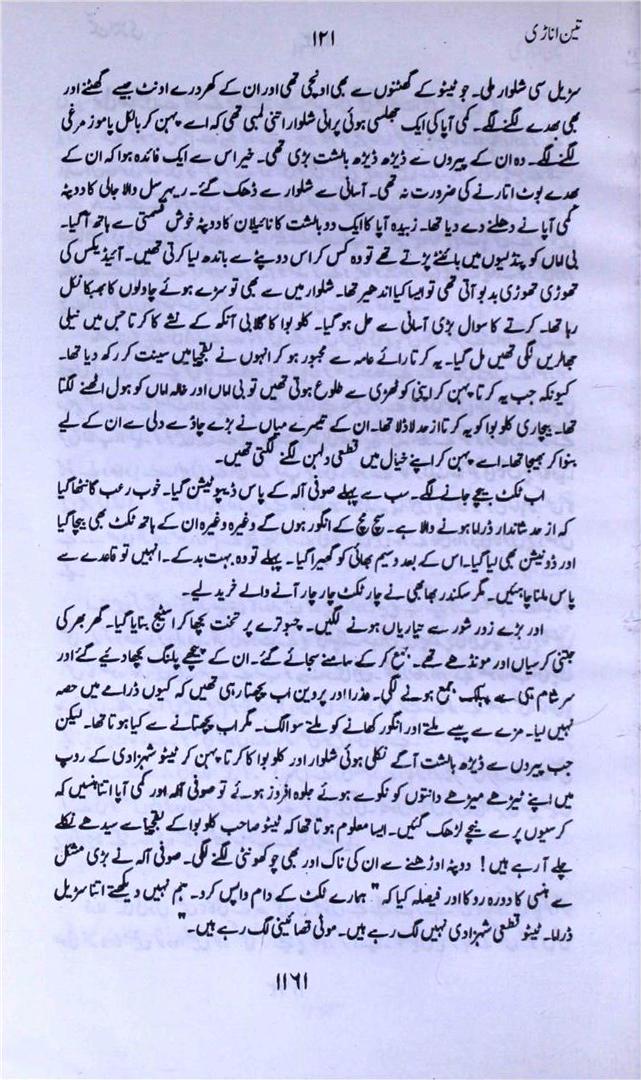 تین اناڑی
۱۲۱
سڑیل سی شلوار ملی۔ جو ٹیٹو کے گھٹنوں سے بھی اونچی تھی اور ان کے کھردرے اونٹ جیسے گھٹنے اور
بھی بھدے لگنے لگے۔ گمی آپا کی ایک جھلسی ہوئی پرانی شلوار اتنی لمبی تھی کہ اسے پہن کر بالکل پاموز مرغی
لگنے لگے۔ وہ ان کے پیروں سے ڈیڑھ ڈیڑھ بالشت بڑی تھی۔ خیر اس سے ایک فائدہ ہوا کہ ان کے
بھدے بوٹ اتارنے کی ضرورت نہ تھی۔ آسانی سے شلوار سے ڈھک گئے۔ ریہرسل والا جالی کا دوپٹہ
گمی آپا نے دھلنے دے دیا تھا۔ زبیدہ آپا کا ایک دو بالشت کا نائیلان کا دوپٹہ خوش قسمتی سے ہاتھ آ گیا۔
بی اماں کو پنڈلیوں میں بائنٹے پڑتے تھے تو وہ کس کر اس دوپٹے سے باندھ لیا کرتی تھیں۔ آئیڈیکس کی
تھوڑی تھوڑی بدبو آتی تھی تو ایسا کیا اندھیر تھا۔ شلوار میں سے بھی تو سڑے ہوئے چاولوں کا بھبکا نکل
رہا تھا۔ کرتے کا سوال بڑی آسانی سے حل ہو گیا۔ کلو بوا کا گلابی آنکھ کے نشے کا کرتا جس میں نیلی
جھالریں لگی تھیں مل گیا۔ یہ کرتا رائے عامہ سے مجبور ہو کر انہوں نے بقچیا میں سینت کر رکھ دیا تھا۔
کیونکہ جب یہ کرتا پہن کر اپنی کوٹھری سے طلوع ہوتی تھیں تو بی اماں اور خالہ اماں کو ہول اٹھنے لگتا
تھا۔ بیچاری کلو بوا کو یہ کرتا از حد لاڈلا تھا۔ ان کے تیسرے میاں نے بڑے چاؤ سے دلی سے ان کے لیے
بنوا کر بھیجا تھا۔ اسے پہن کر اپنے خیال میں قطعی دلہن لگنے لگتی تھیں۔
اب ٹکٹ بیچے جانے لگے۔ سب سے پہلے صوفی آلہ کے پاس ڈیپوٹیشن گیا۔ خوب رعب گانٹھا گیا
کہ از حد شاندار ڈراما ہونے والا ہے۔ سچ مچ کے انگور ہوں گے وغیرہ وغیرہ ان کے ہاتھ ٹکٹ بھی بیچا گیا
اور ڈونیشن بھی لیا گیا۔ اس کے بعد وسیم بھائی کو گھیرا گیا۔ پہلے تو وہ بہت بدکے۔ انہیں تو قاعدے سے
پاس ملنا چاہئیں۔ مگر سکندر بھابھی نے چار ٹکٹ چار چار آنے والے خرید لیے۔
اور بڑے زور شور سے تیاریاں ہونے لگیں۔ چبوترے پر تخت بچھا کر اسٹیج بنایا گیا۔ گھر بھر کی
جتنی کرسیاں اور مونڈھے تھے۔ جمع کر کے سامنے سجائے گئے۔ ان کے پیچھے پلنگ بچھا دیئے گئے اور
سر شام ہی سے پبلک جمع ہونے لگی۔ عذرا اور پروین اب پچھتا رہی تھیں کہ کیوں ڈرامے میں حصہ
نہیں لیا۔ مزے سے پیسے ملتے اور انگور کھانے کو ملتے سو الگ۔ مگر اب پچھتانے سے کیا ہوتا تھا۔ لیکن
جب پیروں سے ڈیڑھ بالشت آگے نکلی ہوئی شلوار اور کلو بوا کا کرتا پہن کر ٹیٹو شہزادی کے روپ
میں اپنے ٹیڑھے میڑھے دانتوں کو نکوسے ہوئے جلوہ افروز ہوئے تو صوفی آلہ اور گمی آپا اتنا ہنسیں کہ
کرسیوں پر سے نیچے لڑھک گئیں۔ ایسا معلوم ہوتا تھا کہ ٹیٹو صاحب کلو بوا کے بقچیا سے سیدھے نکلے
چلے آ رہے ہیں! دوپٹہ اوڑھنے سے ان کی ناک اور بھی چوکھونٹی لگنے لگی۔ صوفی آلہ نے بڑی مشکل
سے ہنسی کا دورہ روکا اور فیصلہ کیا کہ "ہمارے ٹکٹ کے دام واپس کر دو۔ ہم نہیں دیکھتے اتنا سڑیل
ڈراما۔ ٹیٹو قطعی شہزادی نہیں لگ رہے ہیں۔ موئی تھائینی لگ رہے ہیں۔"
۱۱۶۱